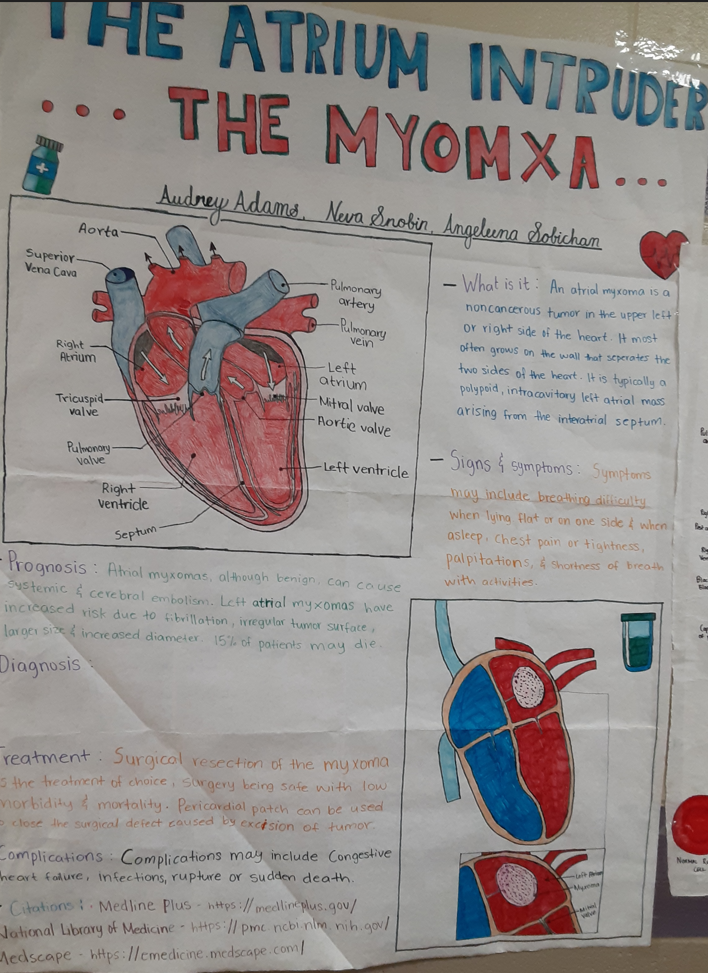 THE ATRIUM INTRUDER
... THE MYOMXA ...
Audrey Adams, Neva Snobin, Angeleena Sobichan
Aorta
Superior
Vena Cava
Right
Atrium
Tricuspid
valve
Pulmonary
valve
Right
ventricle
Septum
Pulmonary
artery
Pulmonary
vein
Left
atrium
Mitral valve
Aortic valve
Left ventricle
– What is it : An atrial myxoma is a
noncancerous tumor in the upper left
or right side of the heart. It most
often grows on the wall that seperates the
two sides of the heart. It is typically a
polypoid, intracavitary left atrial mass
arising from the interatrial septum.
– Signs & symptoms : Symptoms
may include breathing difficulty
when lying flat or on one side & when
asleep, chest pain or tightness,
palpitations, & shortness of breath
with activities.
- Prognosis : Atrial myxomas, although benign, can cause
systemic & cerebral embolism. Left atrial myxomas have
increased risk due to fibrillation, irregular tumor surface,
larger size & increased diameter. 15% of patients may die.
Diagnosis :
Treatment : Surgical resection of the myxoma
is the treatment of choice, surgery being safe with low
morbidity & mortality. Pericardial patch can be used
to close the surgical defect caused by excision of tumor.
Complications : Complications may include Congestive
heart failure, Infections, rupture or sudden death.
• Citations : Medline Plus - https://medlineplus.gov/
National Library of Medicine - https://pmc.ncbi.nlm.nih.gov/
Medscape - https://emedicine.medscape.com/
Left Atrium
Myxoma
Mitral
valve
Normal
Cell